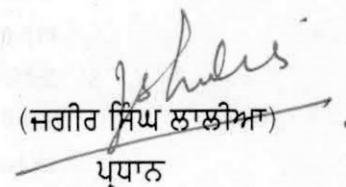 (ਜਗੀਰ ਸਿੰਘ ਲਾਲੀਆ)
ਪ੍ਰਧਾਨ